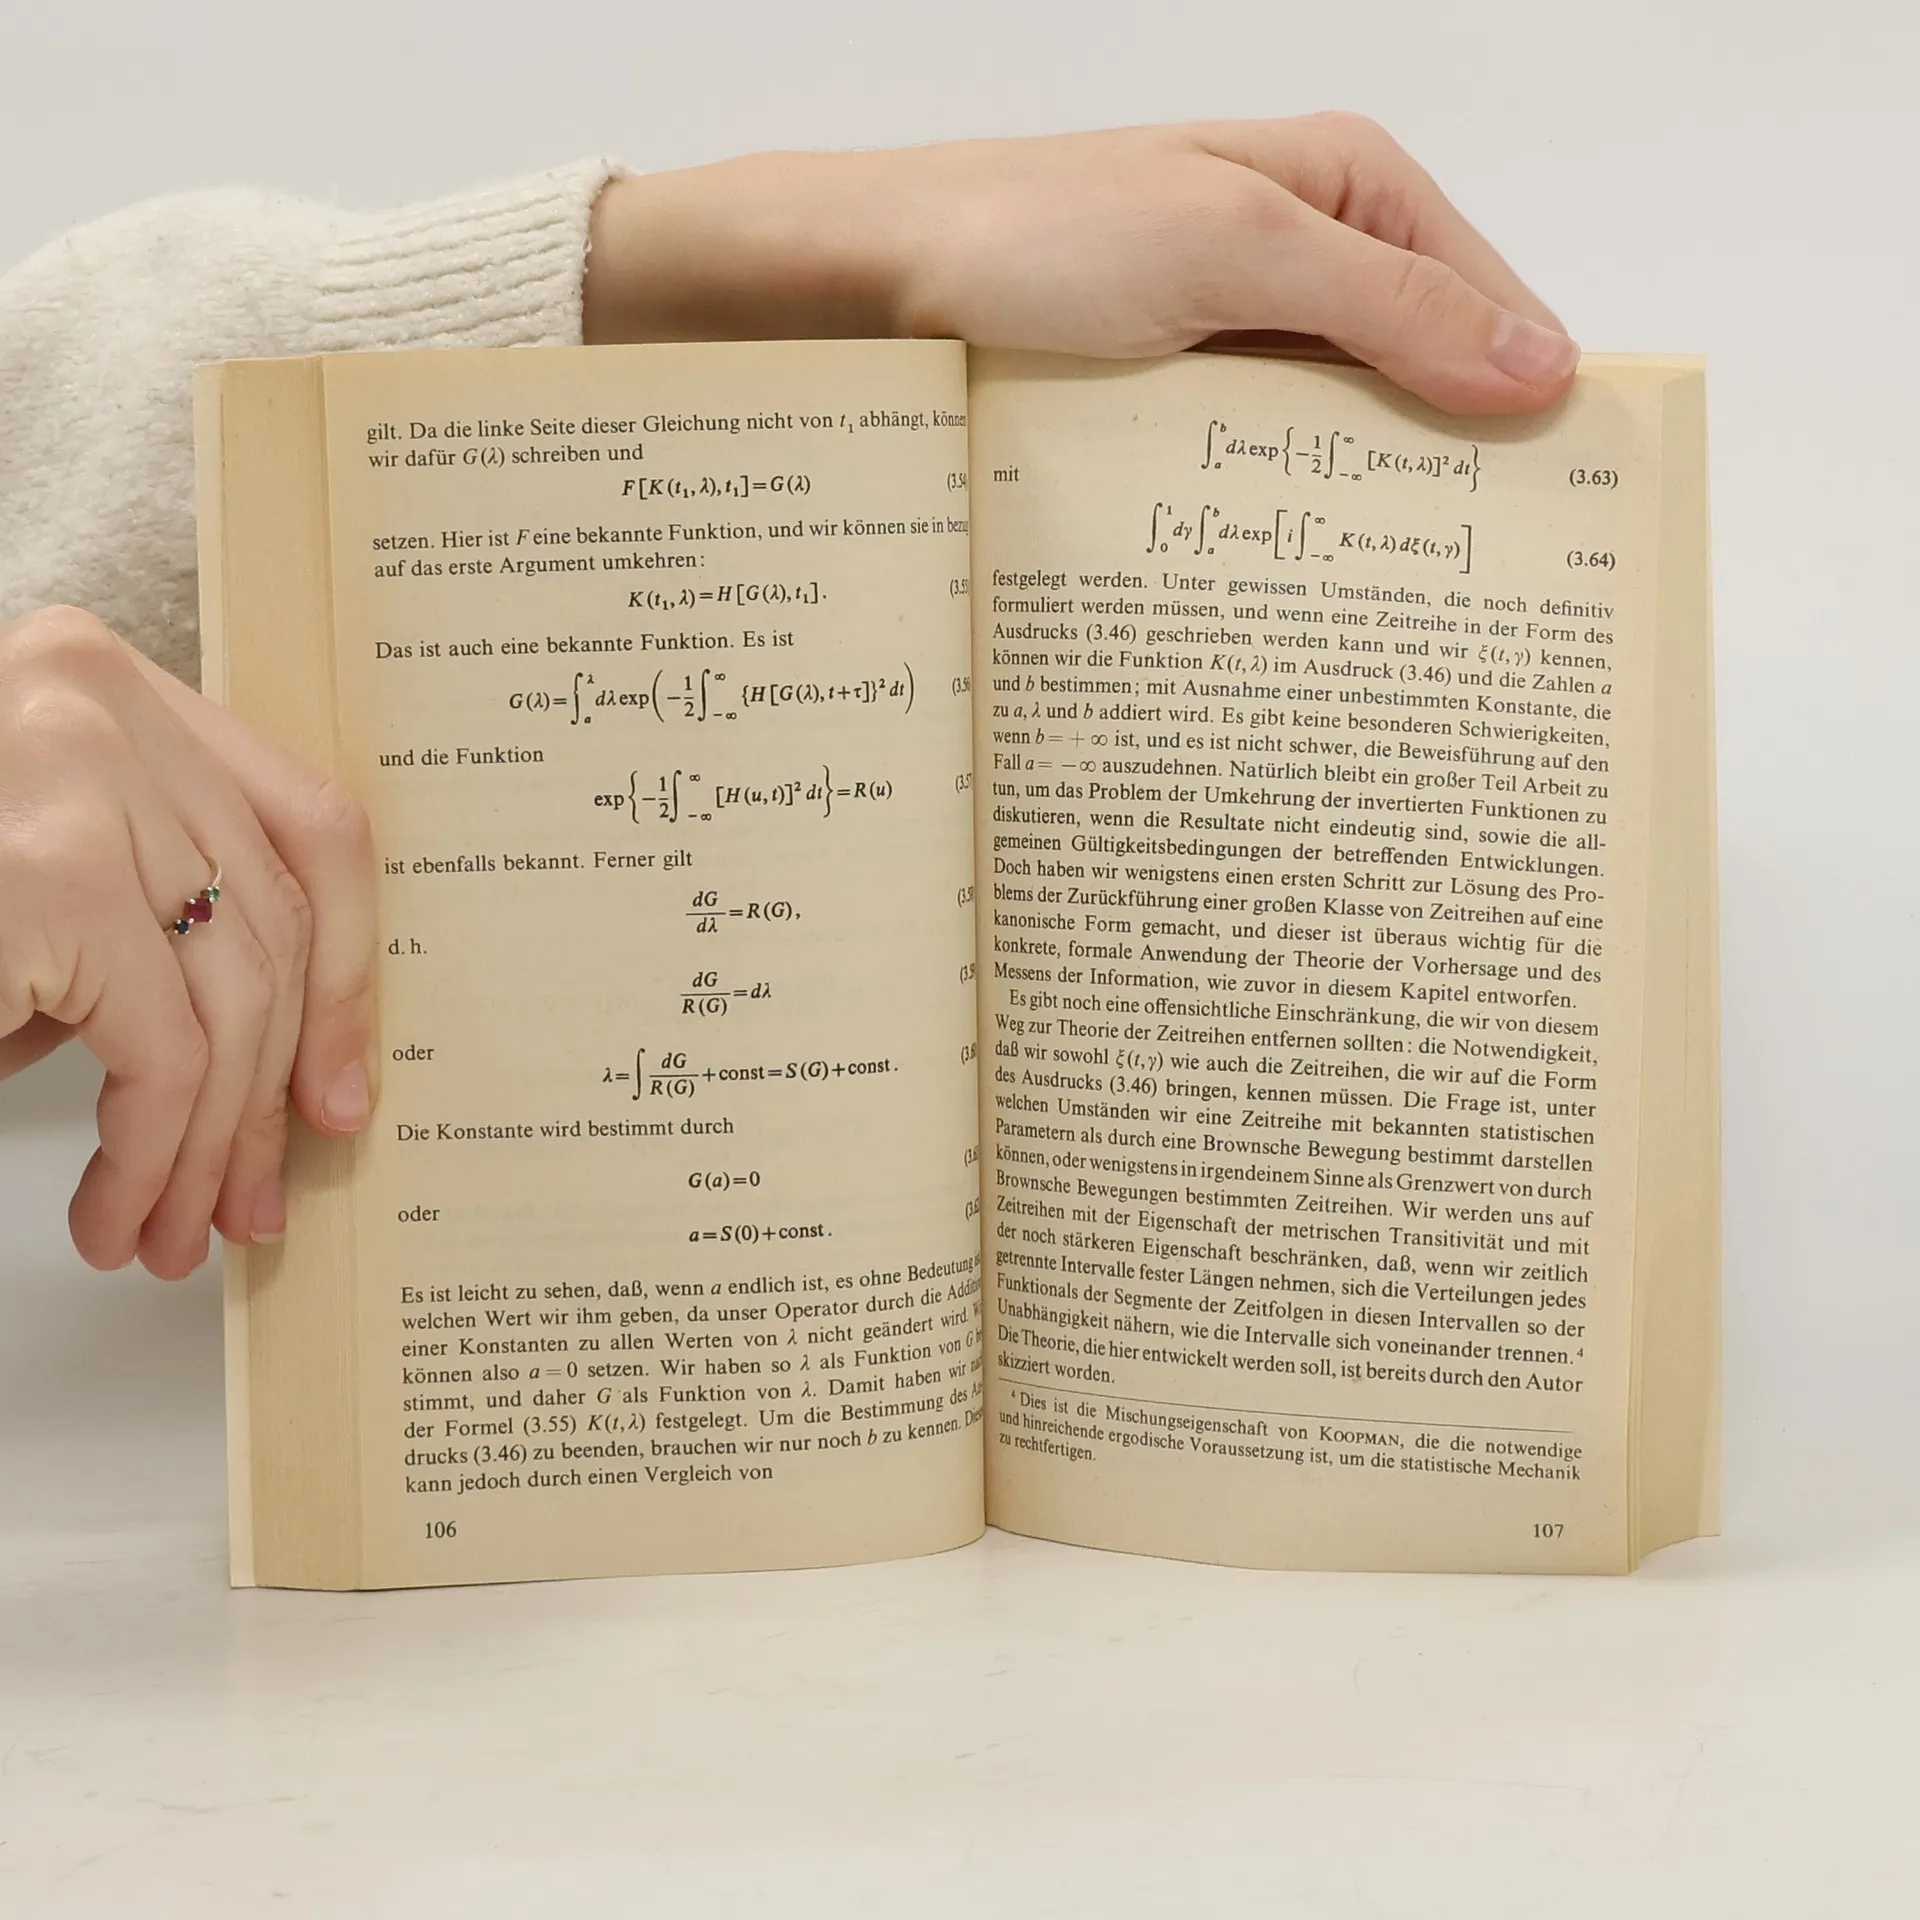 gilt. Da die linke Seite dieser Gleichung nicht von t₁ abhängt, können
wir dafür G(λ) schreiben und
F[K(t₁, λ), t₁]=G(λ) (3.54
setzen. Hier ist F eine bekannte Funktion, und wir können sie in bezug
auf das erste Argument umkehren:
K(t₁, λ)=H[G(λ), t₁]. (3.55
Das ist auch eine bekannte Funktion. Es ist
G(λ)=∫ₐ^λ dλ exp(−1/2 ∫₋∞^∞ {H[G(λ), t+τ]}² dt) (3.56
und die Funktion
exp{−1/2 ∫₋∞^∞ [H(u, t)]² dt}=R(u) (3.57
ist ebenfalls bekannt. Ferner gilt
dG/dλ=R(G), (3.58
d. h.
dG/R(G)=dλ (3.59
oder
λ=∫ dG/R(G)+const=S(G)+const. (3.6
Die Konstante wird bestimmt durch
G(a)=0 (3.6
oder
a=S(0)+const. (3.6
Es ist leicht zu sehen, daß, wenn a endlich ist, es ohne Bedeutung
welchen Wert wir ihm geben, da unser Operator durch die
einer Konstanten zu allen Werten von λ nicht geändert wird.
können also a=0 setzen. Wir haben so λ als Funktion von G
stimmt, und daher G als Funktion von λ. Damit haben wir
der Formel (3.55) K(t, λ) festgelegt. Um die Bestimmung des
drucks (3.46) zu beenden, brauchen wir nur noch b zu kennen.
kann jedoch durch einen Vergleich von
106
∫ₐ^b dλ exp{−1/2 ∫₋∞^∞ [K(t, λ)]² dt} (3.63)
mit
∫₀^1 dγ ∫ₐ^b dλ exp[i ∫₋∞^∞ K(t, λ) dξ(t, γ)] (3.64)
festgelegt werden. Unter gewissen Umständen, die noch definitiv
formuliert werden müssen, und wenn eine Zeitreihe in der Form des
Ausdrucks (3.46) geschrieben werden kann und wir ξ(t, γ) kennen,
können wir die Funktion K(t, λ) im Ausdruck (3.46) und die Zahlen a
und b bestimmen; mit Ausnahme einer unbestimmten Konstante, die
zu a, λ und b addiert wird. Es gibt keine besonderen Schwierigkeiten,
wenn b=+∞ ist, und es ist nicht schwer, die Beweisführung auf den
Fall a=−∞ auszudehnen. Natürlich bleibt ein großer Teil Arbeit zu
tun, um das Problem der Umkehrung der invertierten Funktionen zu
diskutieren, wenn die Resultate nicht eindeutig sind, sowie die all-
gemeinen Gültigkeitsbedingungen der betreffenden Entwicklungen.
Doch haben wir wenigstens einen ersten Schritt zur Lösung des Pro-
blems der Zurückführung einer großen Klasse von Zeitreihen auf eine
kanonische Form gemacht, und dieser ist überaus wichtig für die
konkrete, formale Anwendung der Theorie der Vorhersage und des
Messens der Information, wie zuvor in diesem Kapitel entworfen.
Es gibt noch eine offensichtliche Einschränkung, die wir von diesem
Weg zur Theorie der Zeitreihen entfernen sollten: die Notwendigkeit,
daß wir sowohl ξ(t, γ) wie auch die Zeitreihen, die wir auf die Form
des Ausdrucks (3.46) bringen, kennen müssen. Die Frage ist, unter
welchen Umständen wir eine Zeitreihe mit bekannten statistischen
Parametern als durch eine Brownsche Bewegung bestimmt darstellen
können, oder wenigstens in irgendeinem Sinne als Grenzwert von durch
Brownsche Bewegungen bestimmten Zeitreihen. Wir werden uns auf
Zeitreihen mit der Eigenschaft der metrischen Transitivität und mit
der noch stärkeren Eigenschaft beschränken, daß, wenn wir zeitlich
getrennte Intervalle fester Längen nehmen, sich die Verteilungen jedes
Funktionals der Segmente der Zeitfolgen in diesen Intervallen so der
Unabhängigkeit nähern, wie die Intervalle sich voneinander trennen.⁴
Die Theorie, die hier entwickelt werden soll, ist bereits durch den Autor
skizziert worden.
⁴ Dies ist die Mischungseigenschaft von KOOPMAN, die die notwendige
und hinreichende ergodische Voraussetzung ist, um die statistische Mechanik
zu rechtfertigen.
107